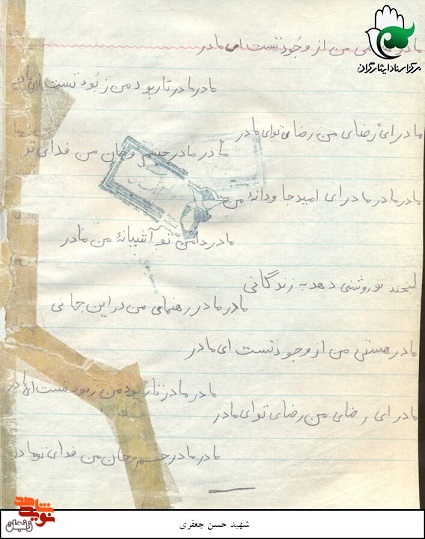 مرکز اسناد ایثارگران
مادر هستی من از وجود تست ای مادر
مادر مادر تار پود من ز بود تست ای مادر
مادر ای رضای من رضای تو ای مادر
مادر مادر جسم و جان من فدای تو
مادر مادر مادر ای امید جاودانهٔ من
مادر دامن تو آشیانهٔ من مادر
لبخند تو روشنی دهد به زندگانی
مادر مادر رهنمای من در این جهانی
مادر هستی من از وجود تست ای مادر
مادر مادر تار بود من ز بود تست ای مادر
مادر ای رضای من رضای تو ای مادر
مادر مادر جسم و جان من فدای تو مادر
نوید شاهد
زنجان
شهید حسن جعفری